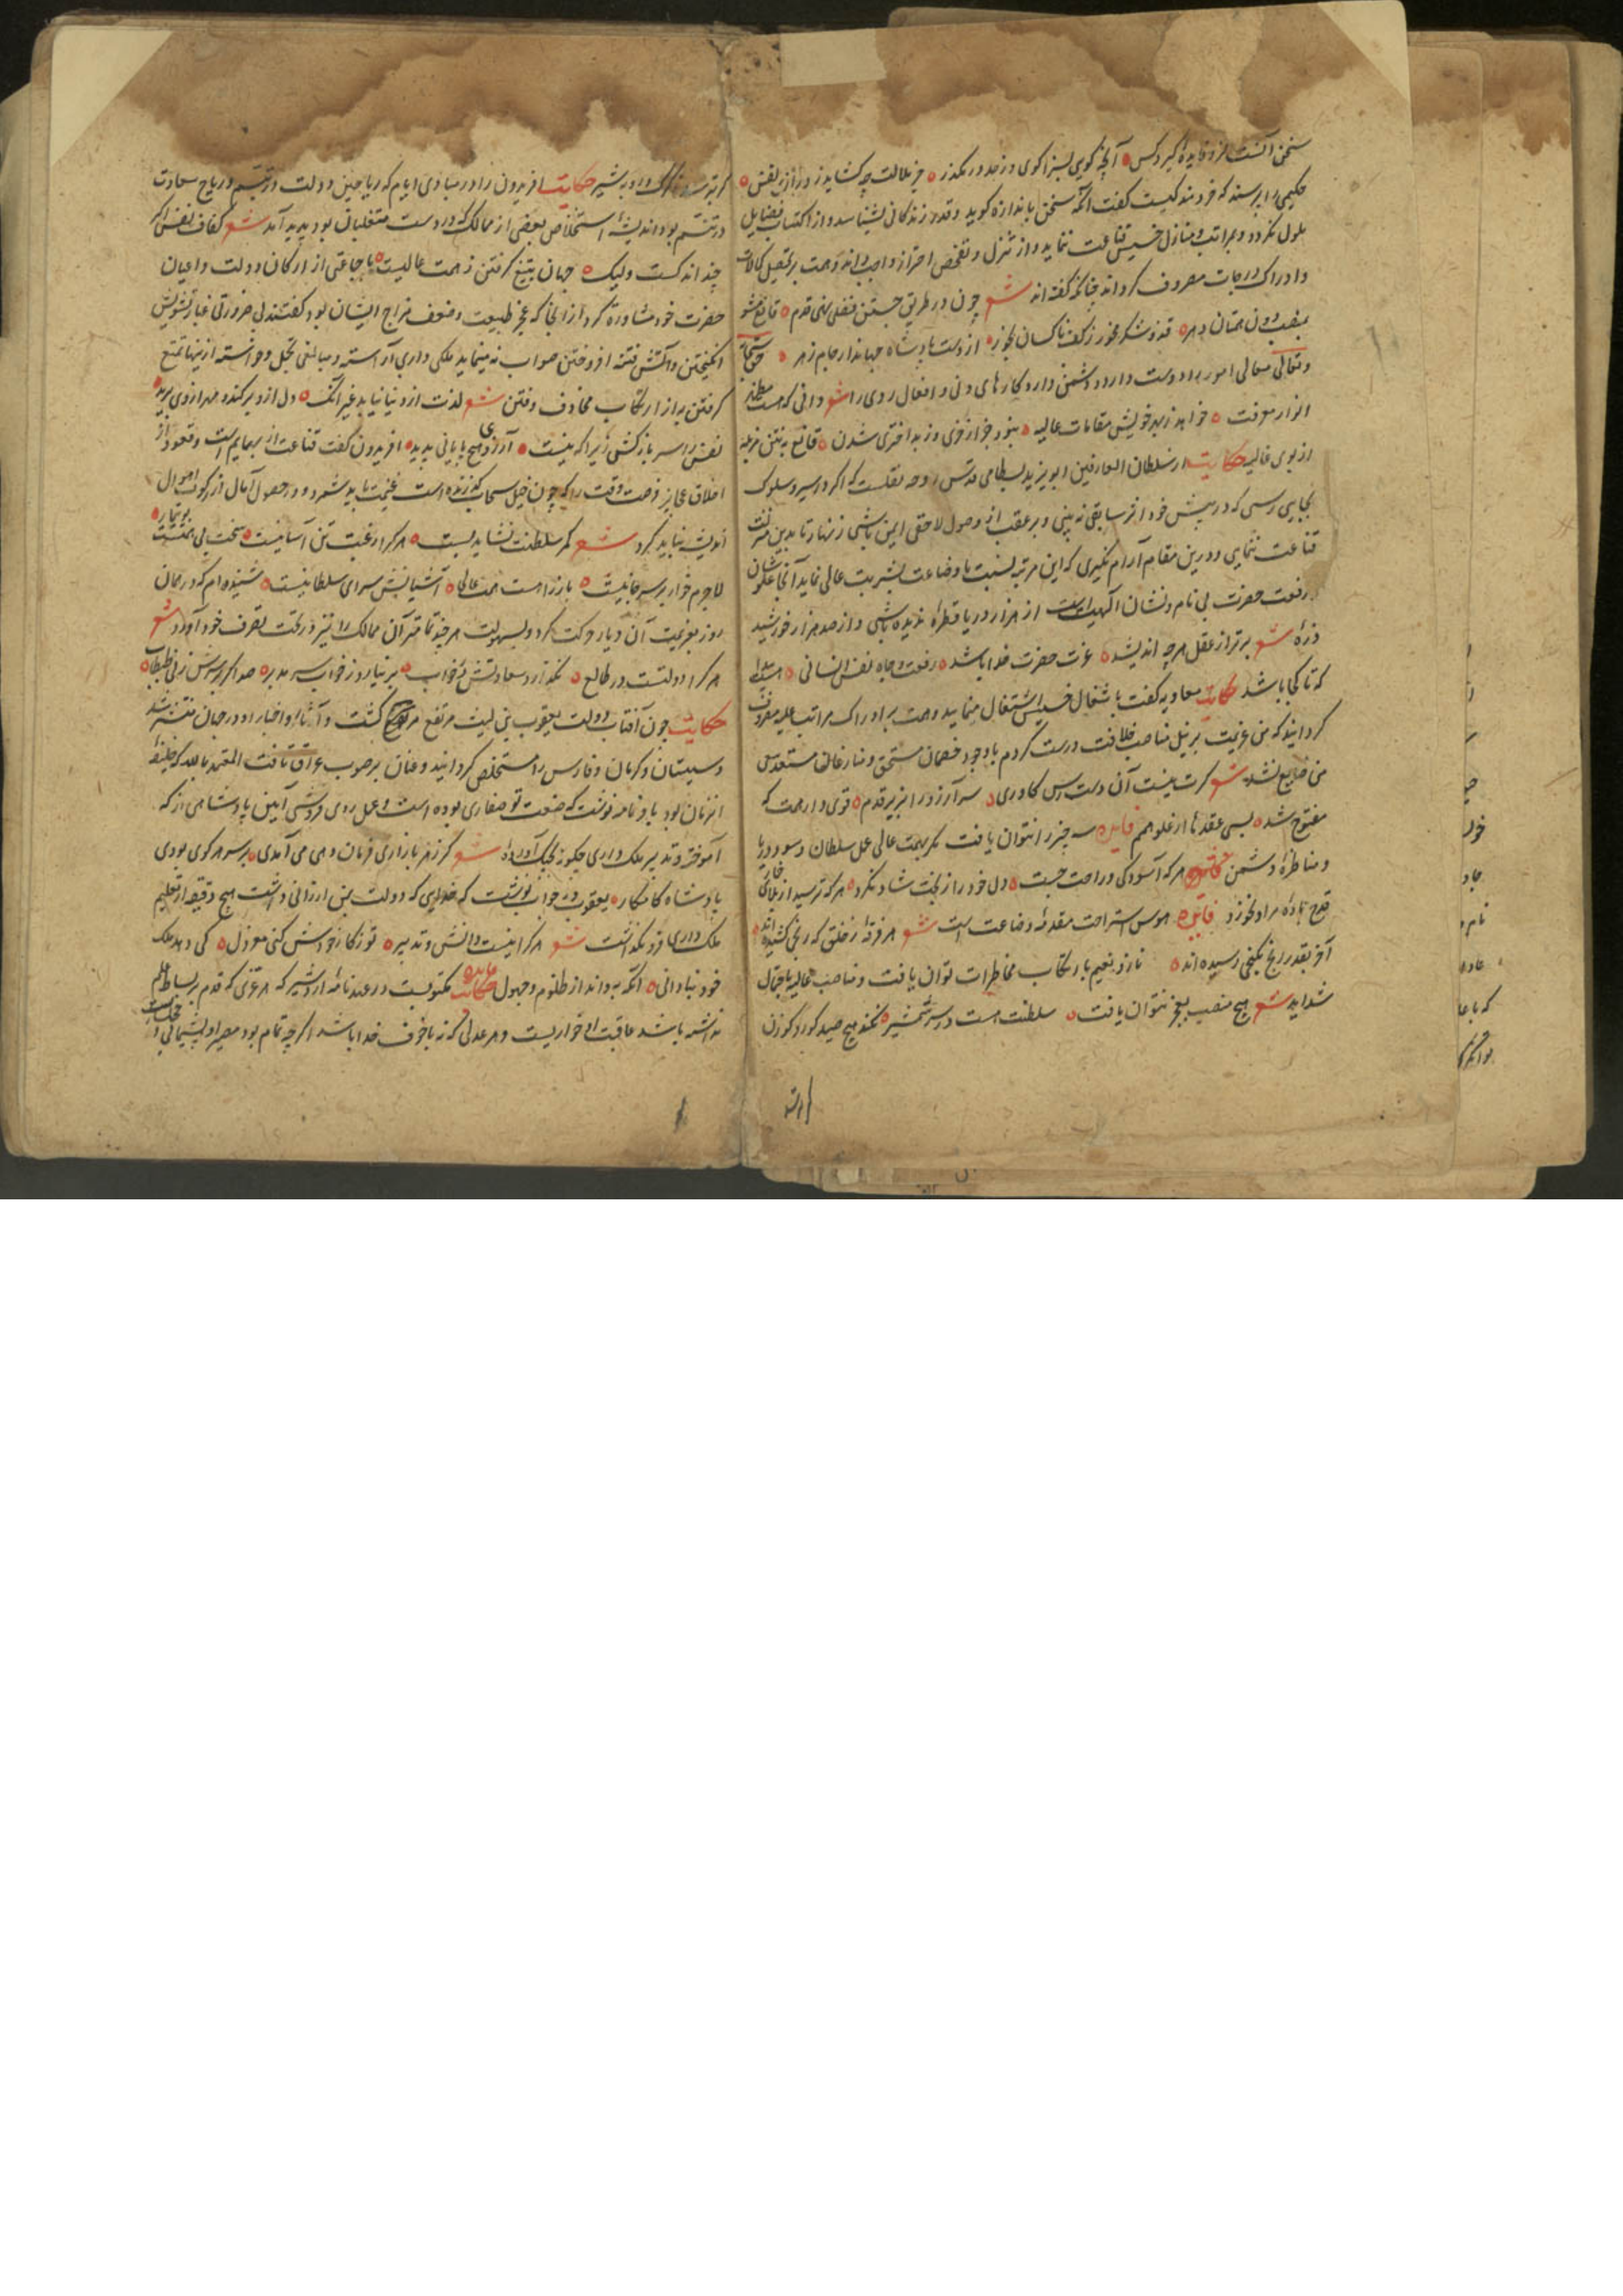 سخن آنست کزو فایده گیرد کس آنچه گویی بسزا گوی و زحد در مگذر جز ملالت چه گشاید ز درازی نفس
حکیمی را پرسیدند که خردمند کیست گفت آنکه سخن باندازه گوید و قدر زندگانی بشناسد و از اکتساب فضایل
ملول نگردد و بمراتب و منازل خسیس قناعت ننماید و از تنزل و تفحص احتراز واجب داند و همت بر تحصیل کمالات
و ادراک درجات مصروف گرداند چنانکه گفته اند شعر چون در طریق جستن فضلی نهی قدم قانع مشو
بمنصب دون همتان دهر قند و شکر مخور ز کف ناکسان بخور از دست پادشاه جهاندار جام زهر حق سبحانه
و تعالی معالی امور را دوست دارد و دشمن دارد کارهای دنی و افعال ردی را شعر دانی که هست مظهر
انوار معرفت خواهد ز بهر خویش مقامات عالیه نبود بجز از خری و ز بد اختری شدن قانع به نتن مزبله
از بوی غالیه حکایت از سلطان العارفین ابویزید بسطامی قدس روحه نقلست که اگر در سیر و سلوک
بجایی رسی که در پیش خود اثر سابقی نه بینی و بر عقب از وصول لاحقی ایمن باشی زنهار تا بدین منزلت
قناعت ننمایی و درین مقام آرام نگیری که این مرتبه نسبت با وضاعت بشریت عالی نماید آنجا علو شان
و رفعت حضرت بی نام و نشان الهیت است از هزار دریا قطرهٔ ندیده باشی و از صد هزار خورشید
ذرهٔ شعر برتر از عقل هرچه اندیشد عزت حضرت خدا باشد رفعت و جاه نفس انسانی
که تا کجا باشد حکایت معاویه گفت باشغال خسیس اشتغال منمایید و همت بر ادراک مراتب علیه مصروف
گردانید که من عزیمت بر نیل مناصب خلافت درست کردم با وجود خصمان مستحق و منازعان مستعد سعی
من ضایع نشد شعر گرت نیست آن دست رس کاوری سر آرزو را بزیر قدم قوی دار همت که
مفتوح شد بسی عقدها از علو همم فایده سه چیز را نتوان یافت مگر بهمت عالی عمل سلطان و سود دریا
و مناظرهٔ دشمن هر که آسودگی و راحت جست دل خود را ز بخت شاد نکرد هر که ترسید از بلای خمار
قدح بادهٔ مراد نخورد فایده هوس استراحت مقدمهٔ وضاعت است شعر هر فرقهٔ ز خلق که رنجی کشیده اند
آخر بقدر رنج بگنجی رسیده اند ناز و نعیم بارتکاب مخاطرات توان یافت و مناصب عالیه باحتمال
شداید شعر هیچ منصب بعجز نتوان یافت سلطنت هست در سر شمشیر نکند هیچ صید گور و گوزن
گربه گرگ و روبه شیر حکایت افریدون را در مبادی ایام که ریاحین دولت در تبسم و ریاح سعادت
در تنسم بود اندیشهٔ استخلاص بعضی از ممالک که در دست متغلبان بود پدید آمد شعر کفاف نفس اگر
چند اندکست ولیک جهان بتیغ گرفتن ز همت عالیست با جماعتی از ارکان دولت و اعیان
حضرت خود مشاورة کرد از آنجا که عجز طبیعت و ضعف مزاج ایشان بود گفتند بی ضرورتی غبار تشویش
انگیختن و آتش فتنه افروختن صواب نه مینماید ملکی داری آراسته و مبالغی تجمل و خواسته ازینها تمتع
گرفتن به از ارتکاب مخاوف و فتن شعر لذت از دنیا نیابد غیر آنک دل ازو برکنده مهر از وی برید
نفس را سر باز کش زیرا که نیست آرزو را هیچ پایانی پدید افریدون گفت قناعت از بهایم است و قعود از
اخلاق عجایز فرصت وقت را که چون خیل سحاب گذرنده است غنیمت باید شمرد و در حصول آمال از رکوب اهوال
اندیشه نباید کرد شعر کمر سلطنت نشاید بست هر کرا رغبت تن آسانیست سخت بی همتست بوتیمار
لاجرم خوار بر سر بانیست باز را هست همت عالی آشیانش سرای سلطانیست شنیده ام که در همان
روز بعزیمت آن دیار حرکت کرد و بسهولت هرچه تمامتر آن ممالک را نیز در تحت تصرف خود آورد شعر
هر کرا دولتست در طالع نگذارد سعادتش در خواب بر نیارد ز خواب سر مدبر صد اگر بر سرش زنی طبطاب
حکایت چون آفتاب دولت یعقوب بن لیث مرتفع گشت و آثار و اخبار او در جهان منتشر شد
و سیستان و کرمان و فارس را مستخلص گردانید و عنان بر صوب عراق تافت المعتمد بالله که خلیفهٔ
آن زمان بود باو نامه نوشت که صنعت تو صفاری بوده است و عمل روی فروشی آیین پادشاهی از که
آموختهٔ و تدبیر ملک داری چگونه بچنگ آوردهٔ شعر گر ز هر بازاری فرمان دهی می آمدی بر سر هر کوی بودی
پادشاه کامکار یعقوب در جواب نوشت که خدایی که دولت بمن ارزانی داشت هیچ دقیقه از تعلیم
ملک داری فرو نگذاشت شعر هر کرا نیست دانش و تدبیر تو ز کار خودش کنی معزول کی دهد ملک
خود بنادانی آنکه به داند از ظلوم و جهول حکایت مکتوبست در عهد نامهٔ اردشیر که هر عزی که قدم بر بساط علم
نداشته باشد عاقبت آن خواریست و هر عدلی که نه با خوف خدا باشد اگرچه تمام بود مصیر او پشیمانی و خجالت